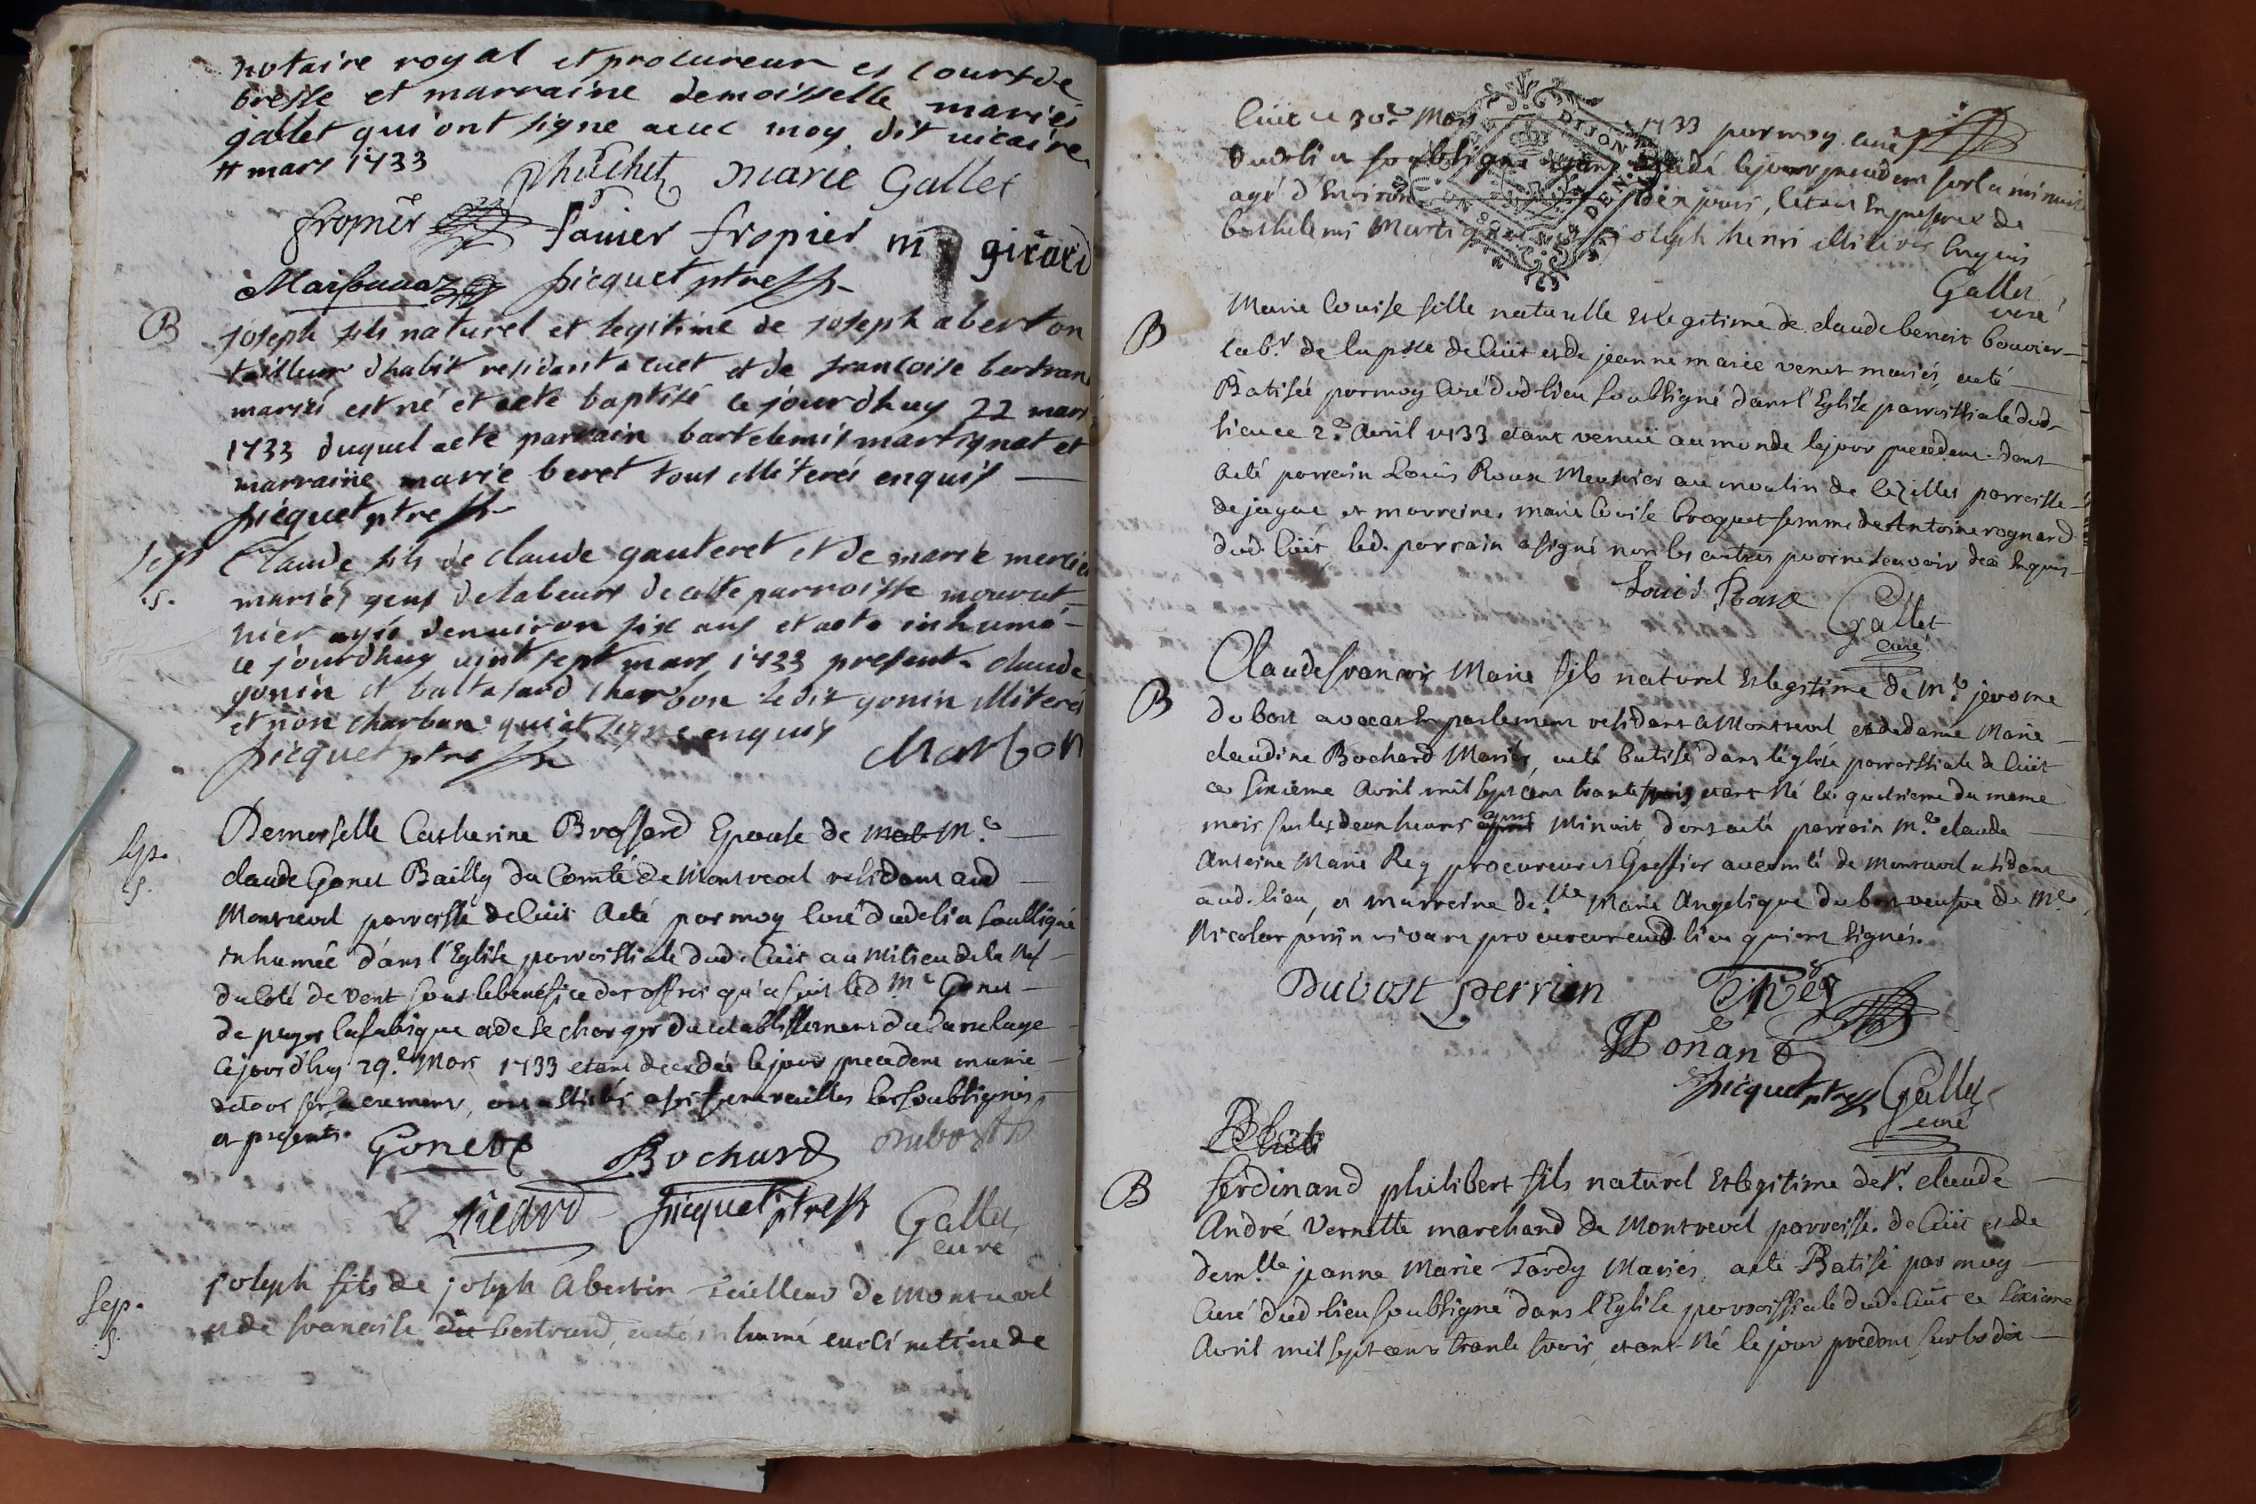 notaire royal et procureur es cours de
bresse et marraine demoisselle mariés
gallet qui ont signe avec moy dit vicaire
11 mars 1733
phuchet marie Gallet
fropier Panier fropier m girard
Marsuuaz picquet ptre
B
joseph fils naturel et legitime de joseph aberton
tailleur dhabit residant a cuet et de francoise bertrand
mariés est né et aete baptisé ce jourdhuy 22 mars
1733 duquel aeté parrain bartelemis martignat et
marraine marie beret tous illiterés enquis
picquet ptre
sep
.s.
Claude fils de claude gauteret et de marie mercier
mariés gens delabeurs de cette parroisse mourut
hier agé denuiron six ans et aeté inhumé
ce jourdhuy uint sept mars 1733 presents claude
gonin et baltasard charbon ledit gonin illiteré
et non charbon qui at signe enquis
picquet ptre Charbon
Sep.
s.
Demoiselle Catherine Brossard Epouse de M.e
claude Gonet Bailly du Comté de Montrevel residant aud
Montrevel parroisse de Cüit Aeté par moy Curé dud lieu soussigné
inhumée dans l'Eglise parroissiale dud. Cüit au milieu de la Nef
du coté de vent sous le benefice des offres qu'a fait led M.e Gonet
de payer la fabrique et de se charger du retablissement du carrelage
cejourdhuy 29.e Mars 1733 etant decedée le jour precedent munie
de tous ses sacrements, ont assistés a ses funerailles les soubsignés
et presents.
Gonet Bochard Dubost
Picard picquet ptre Gallet
curé
Sep.
S.
joseph fils de joseph Abertin Tailleur de Montrevel
et de francoise bertrand, aeté inhumé au cimetiere de
Cüit ce 30.e Mars 1733 par moy curé
dud. lieu soubsigné decedé le jour precedent sur la minuit
agé d'Environ dix jours, le tout En presence de
barthelemis Martignat joseph henri illiterés Enquis
Gallet
curé
B
Marie Louise fille naturelle et legitime de claude benoit bouvier
lab.r de la psse de Cüit et de jeanne marie venet mariés, aeté
Batisée par moy Curé dud lieu soubsigné dans l'Eglise parroissiale dud
lieu ce 2.e Avril 1733 etant venüe au monde le jour precedent. dont
aeté parrain Louis Roux Meusnier au moulin de Cezilles parroisse
de jayac et marreine. marie Louise broquet femme de Antoine rognard
dud. Cüit, led. parrain a signé non les autres pour ne scavoir de ce Enquis
Louis Roux Gallet
curé
B
Claude francois Marie fils naturel et legitime de M.e jerome
dubost avocat En parlement residant a Montrevel et de dame Marie
claudine Bochard Mariés, aeté batisé dans l'église parroissiale de Cüit
ce sixieme Avril mil sept cent trante trois etant Né le quatrieme du meme
mois sur les deux heures apres Minuit, dont aeté parrain M.e claude
Antoine Marie Rey procureur et Greffier au comté de Montrevel residant
aud. lieu, et marreine de.lle Marie Angelique dubost veufve de M.e
Nicolas perrin vivant procureur aud. lieu qui ont signés.
Dubost perrin C Rey
Ronand
picquet ptre Gallet
curé
B
ferdinand philibert fils naturel et legitime de s.r claude
André Vernette marchand de Montrevel parroisse. de Cüit et de
dem.lle jeanne Marie Tardy Mariés, aeté Batisé par moy
Curé dud lieu soubsigné dans l'Eglise parroissiale dud Cüit ce sixieme
Avril mil sept cent trante trois, etant Né le jour precedent sur les dix